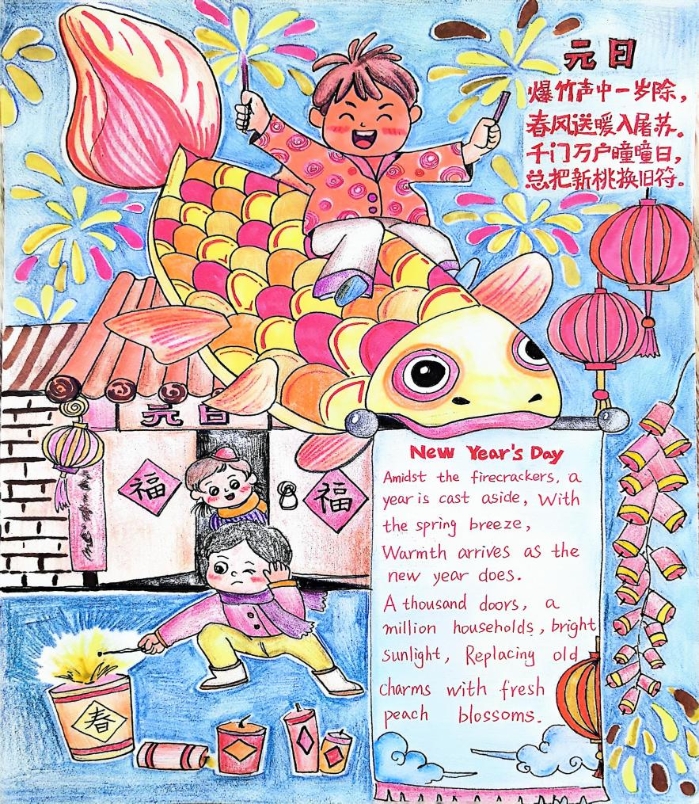 元日
爆竹声中一岁除，
春风送暖入屠苏。
千门万户曈曈日，
总把新桃换旧符。
元日
福
福
春
New Year's Day
Amidst the firecrackers, a
year is cast aside, With
the spring breeze,
Warmth arrives as the
new year does.
A thousand doors, a
million households, bright
sunlight, Replacing old
charms with fresh
peach blossoms.